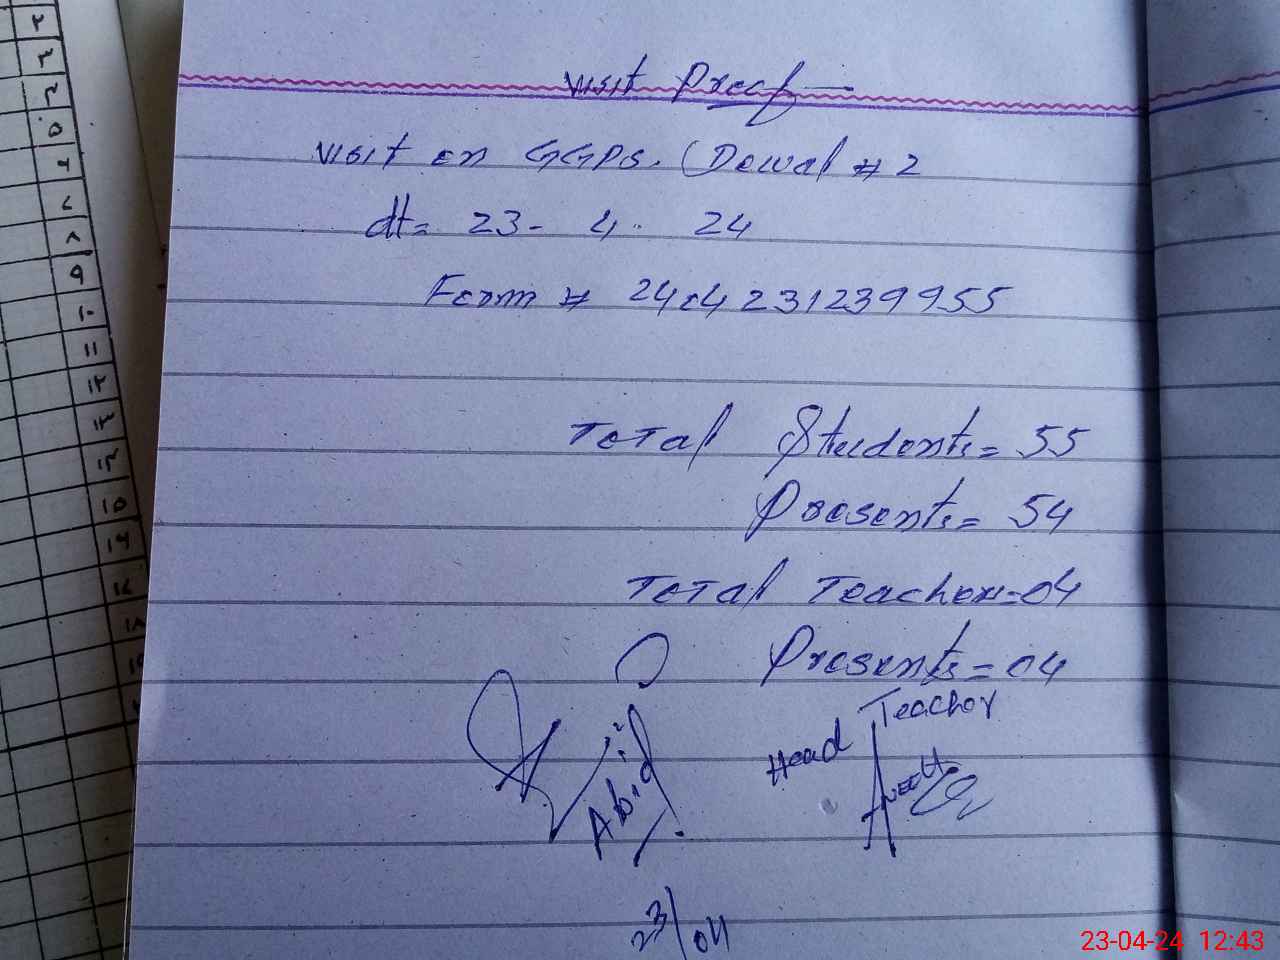 Visit Proof
Visit on GGPS. (Dewal # 2
dt= 23- 4. 24
Form # 2404231239955
Total Students = 55
Presents = 54
Total Teacher = 04
Presents = 04
Head Teacher
Abid
23/04
23-04-24 12:43